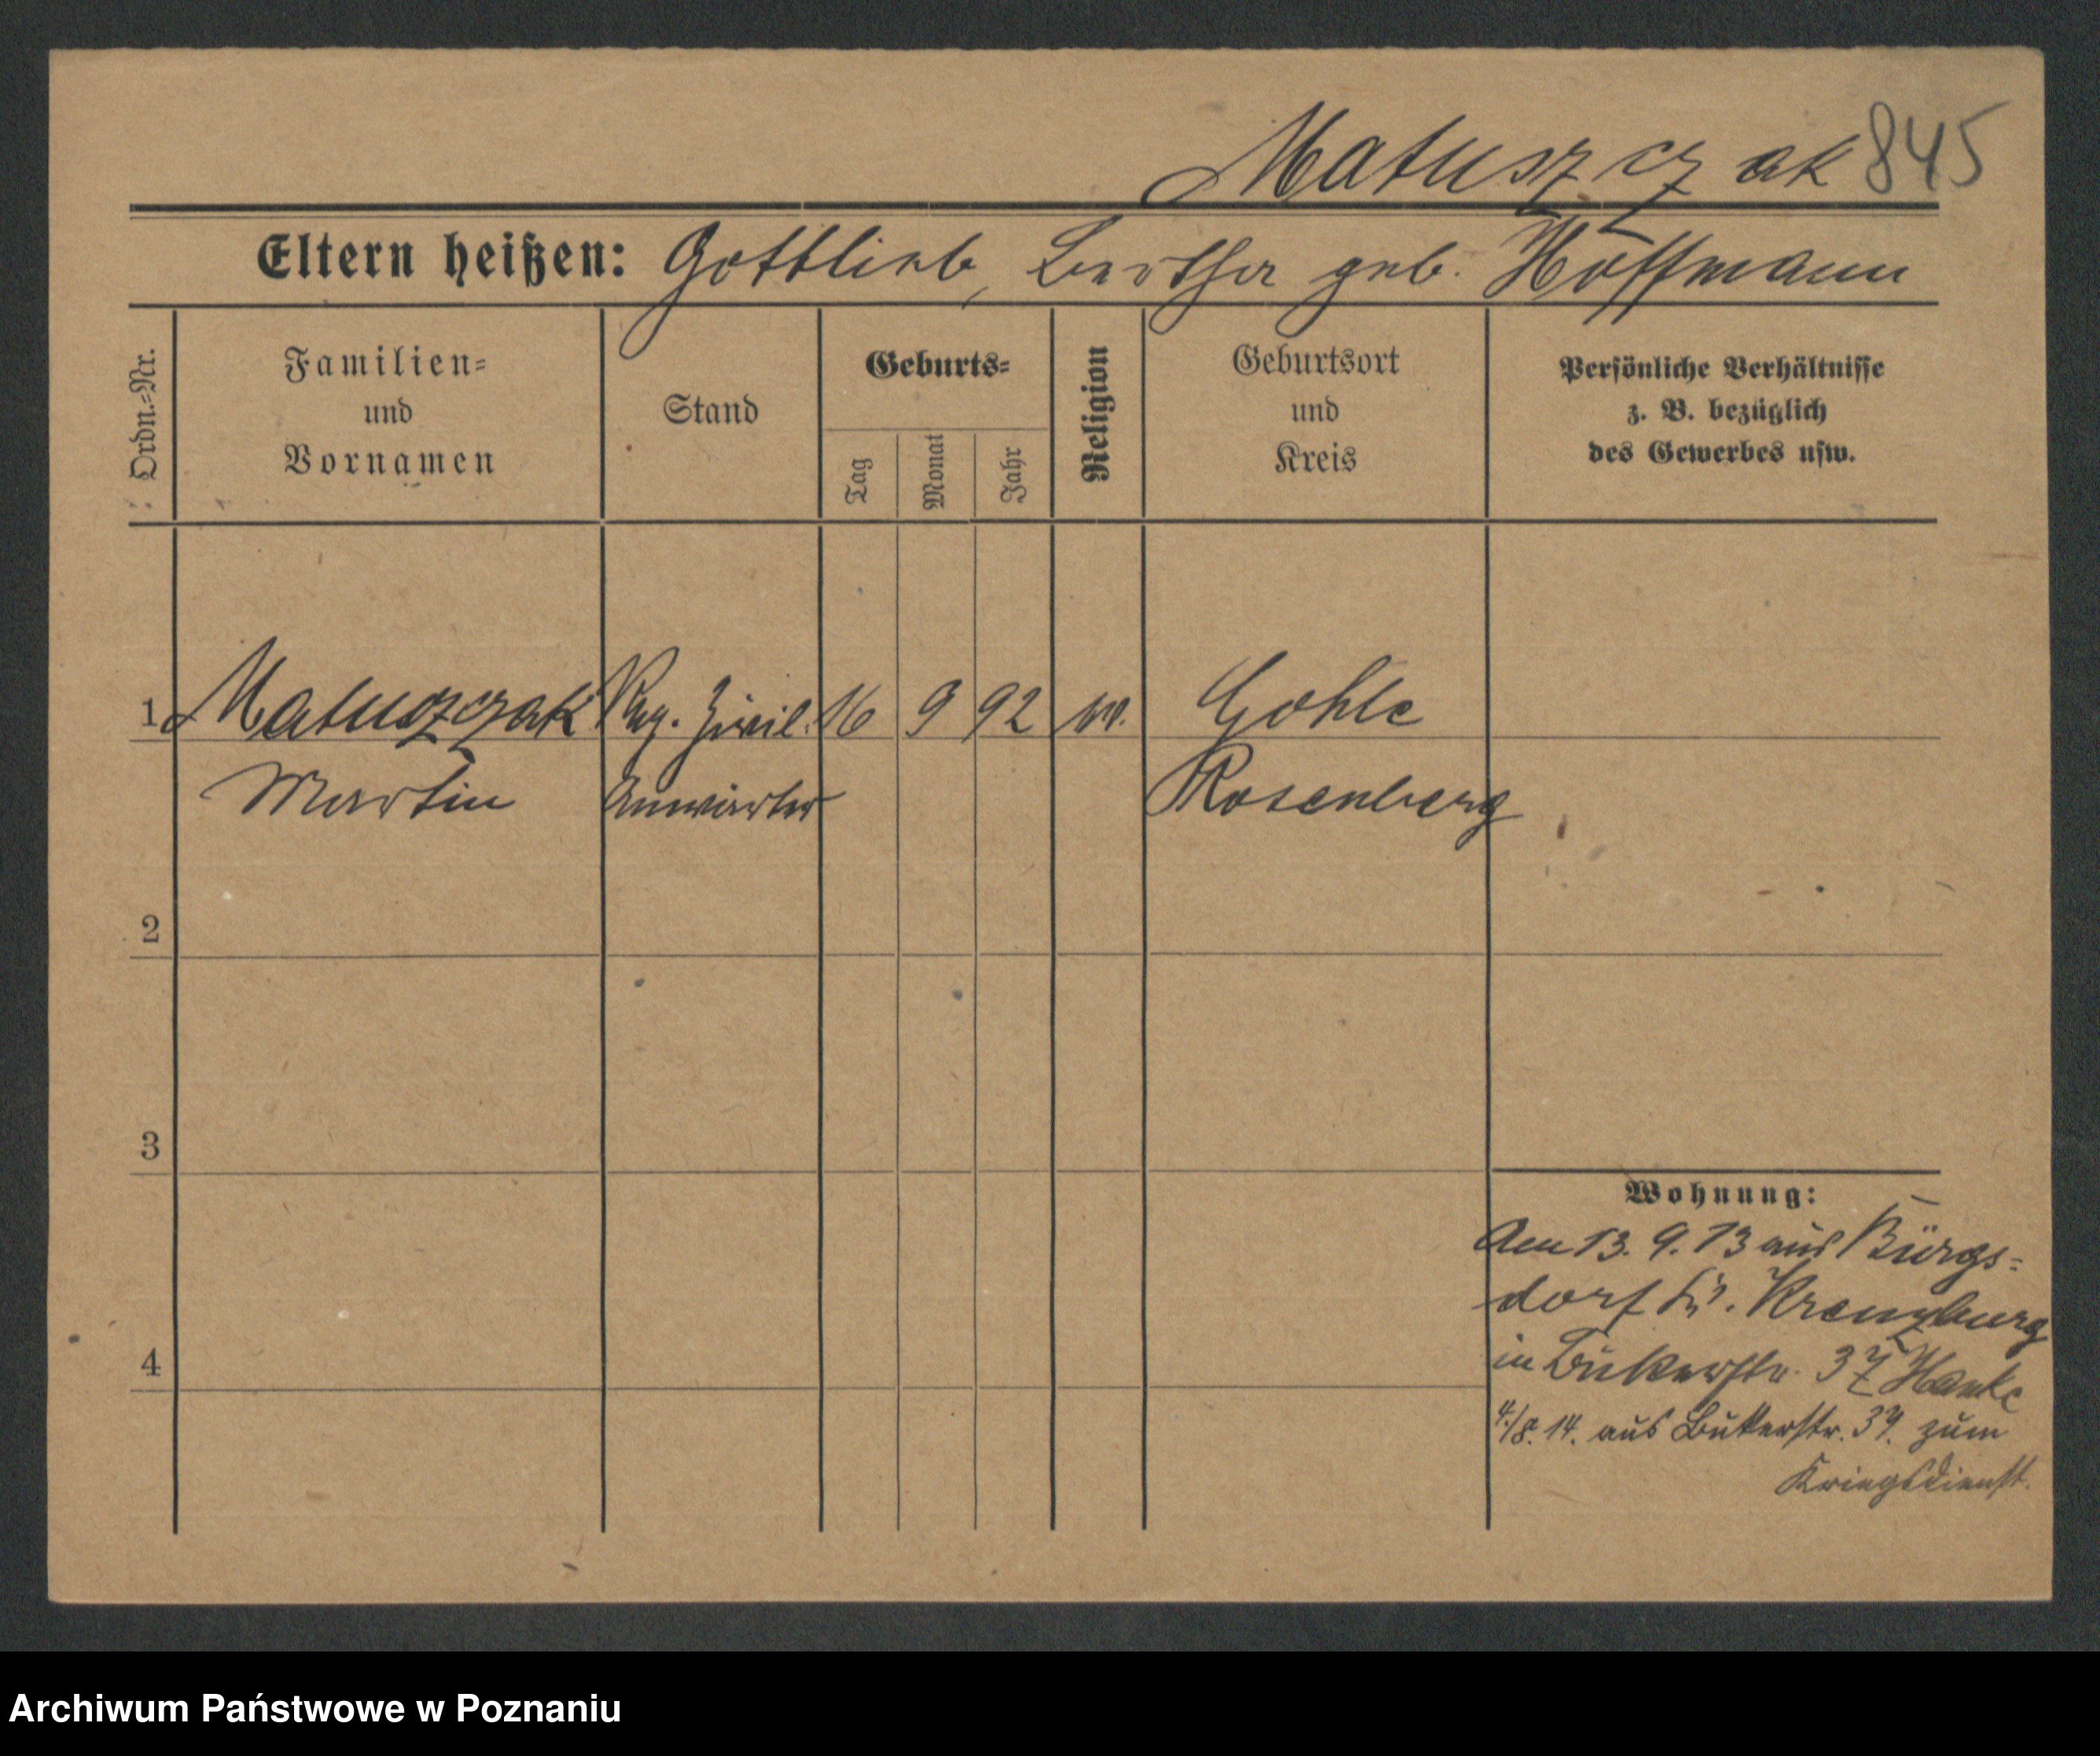 Matuszczak 845
Eltern heißen: Gottlieb, Bertha geb. Hoffmann
Ordn.-Nr.
Familien-
und
Vornamen
Stand
Geburts-
Tag
Monat
Jahr
Religion
Geburtsort
und
Kreis
Persönliche Verhältnisse
z. B. bezüglich
des Gewerbes usw.
1 Matuszczak Reg. Zivil. 16 9 92 Gohle
Martin Anwärter Rosenberg
2
3
4
Wohnung:
Am 13. 9. 13 aus Bürgs-
dorf Kr. Kreuzburg
in Bukerstr. 37 Hanke
4./8. 14. aus Bukerstr. 37. zum
Kriegsdienst.
Archiwum Państwowe w Poznaniu